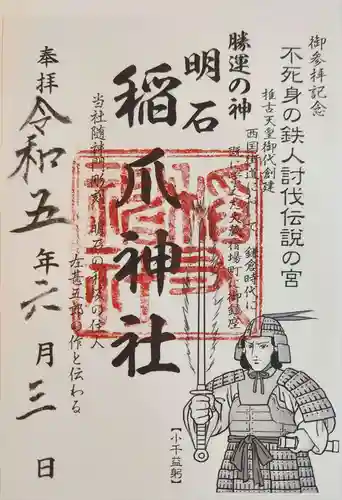 御参拝記念
不死身の鉄人討伐伝説の宮
推古天皇御代創建
西国街道に
鎌倉時代に
大蔵谷宿場町に御鎮座
勝運の神
明石
稲爪神社
当社随神門彫刻
明石の
の住人
左甚五郎の作と伝わる
奉拝
令和五年六月三日
【小千益躬】